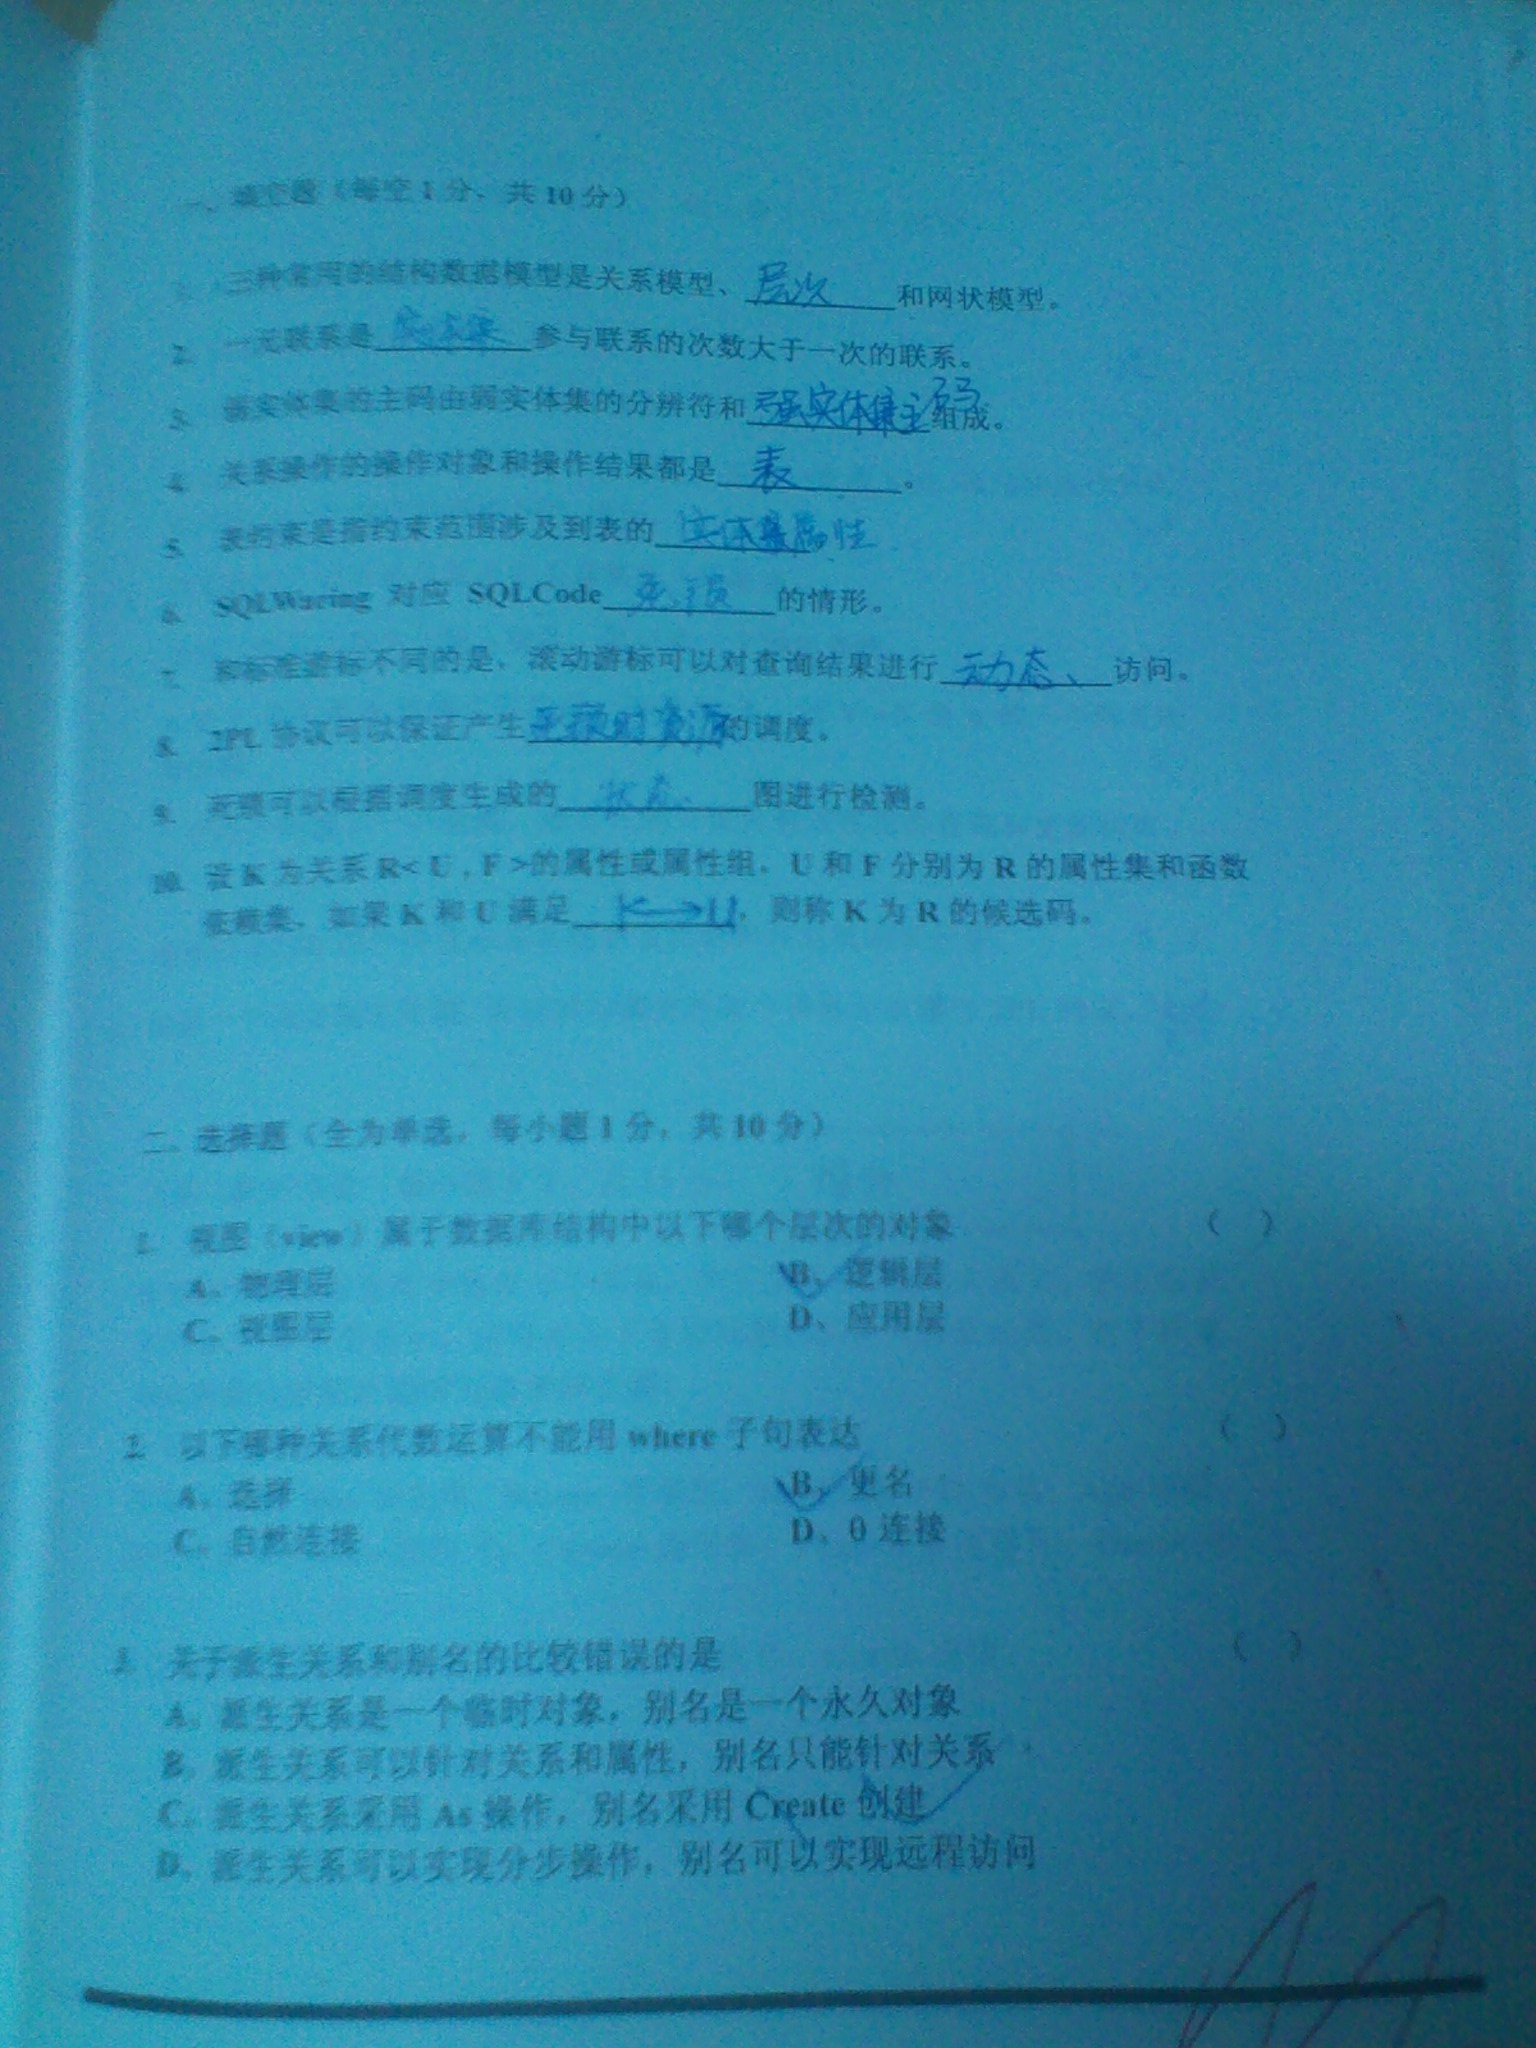 一、填空题（每空 1 分、共 10 分）
1. 三种常用的结构数据模型是关系模型、层次和网状模型。
2. 一元联系是实体集参与联系的次数大于一次的联系。
3. 弱实体集的主码由弱实体集的分辨符和强实体集主码组成。
4. 关系操作的操作对象和操作结果都是表。
5. 表约束是指约束范围涉及到表的实体集属性
6. SQLWaring 对应 SQLCode 的情形。
7. 和标准游标不同的是，滚动游标可以对查询结果进行动态、访问。
8. 2PL 协议可以保证产生死锁时资源的调度。
9. 死锁可以根据调度生成的状态图进行检测。
10. 设 K 为关系 R< U , F >的属性或属性组，U 和 F 分别为 R 的属性集和函数
依赖集，如果 K 和 U 满足 K→U，则称 K 为 R 的候选码。
二、选择题（全为单选，每小题 1 分，共 10 分）
1. 视图（view）属于数据库结构中以下哪个层次的对象 （ ）
A、物理层 B、逻辑层
C、视图层 D、应用层
2. 以下哪种关系代数运算不能用 where 子句表达 （ ）
A、选择 B、更名
C、自然连接 D、θ 连接
3. 关于派生关系和别名的比较错误的是 （ ）
A、派生关系是一个临时对象，别名是一个永久对象
B、派生关系可以针对关系和属性，别名只能针对关系
C、派生关系采用 As 操作，别名采用 Create 创建
D、派生关系可以实现分步操作，别名可以实现远程访问